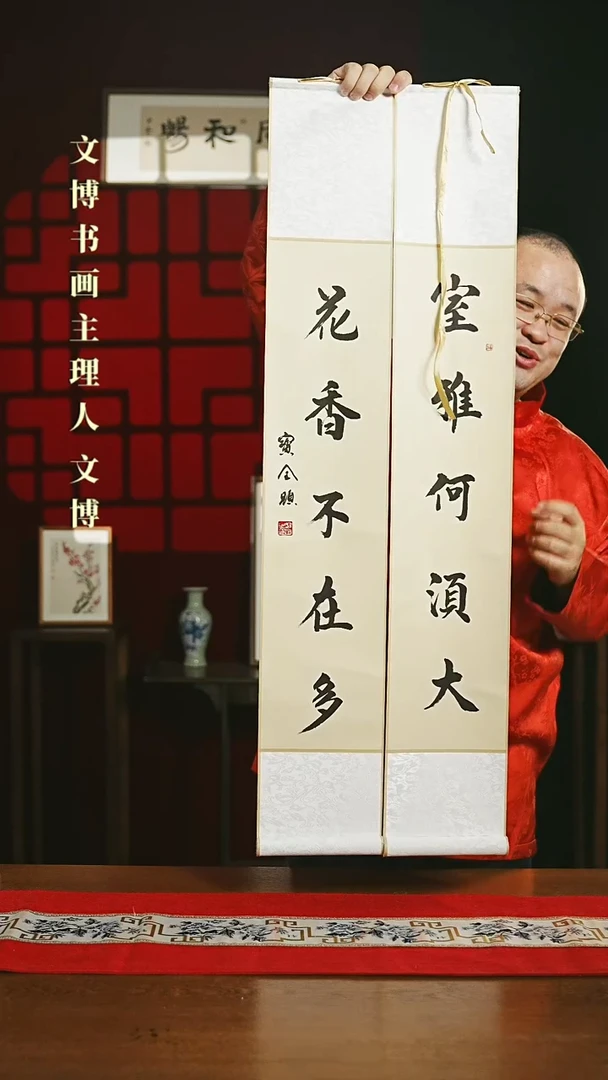 室雅何湏大
花香不在多
文博书画主理人 文博
和